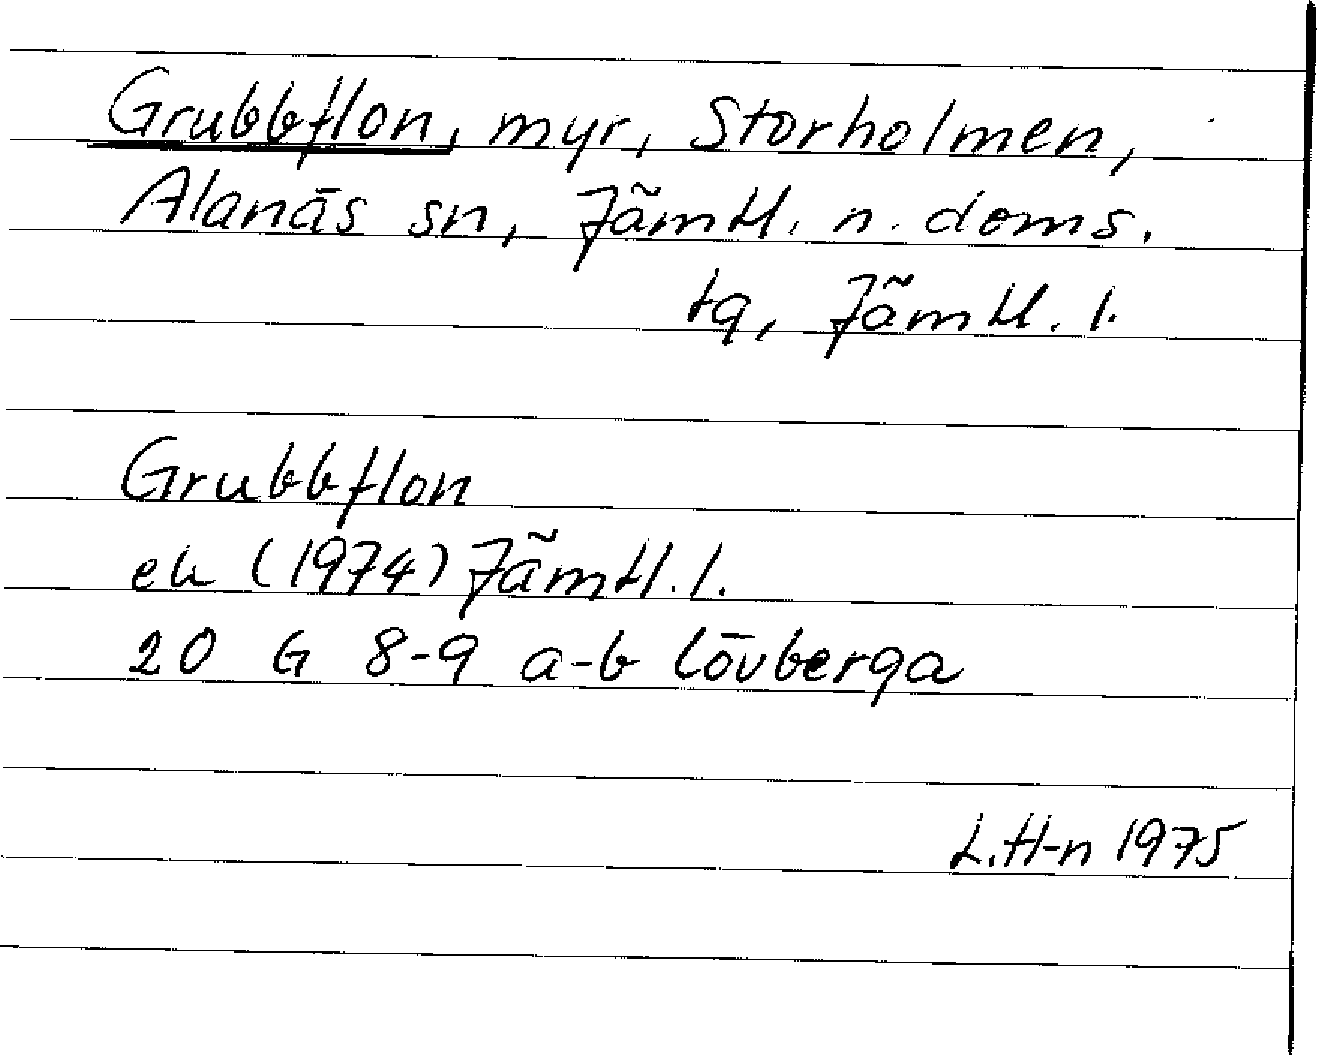 Grubbflon, myr, Storholmen,
Alanäs sn, Jämtl. n. doms.
tg, Jämtl. l.
Grubbflon
ek (1974) Jämtl. l.
20 G 8-9 a-b Lövberga
L. H-n 1975